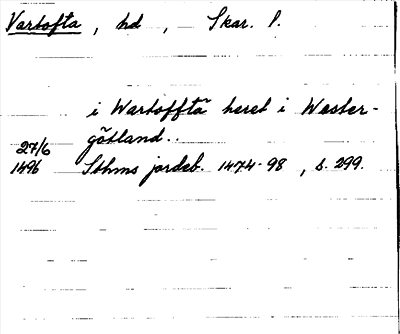 Vartofta, hd, Skar. l.
i Wartofftä heret i Wester-
götland..
27/6
1496 Sthms jordeb. 1474-98, s. 299.